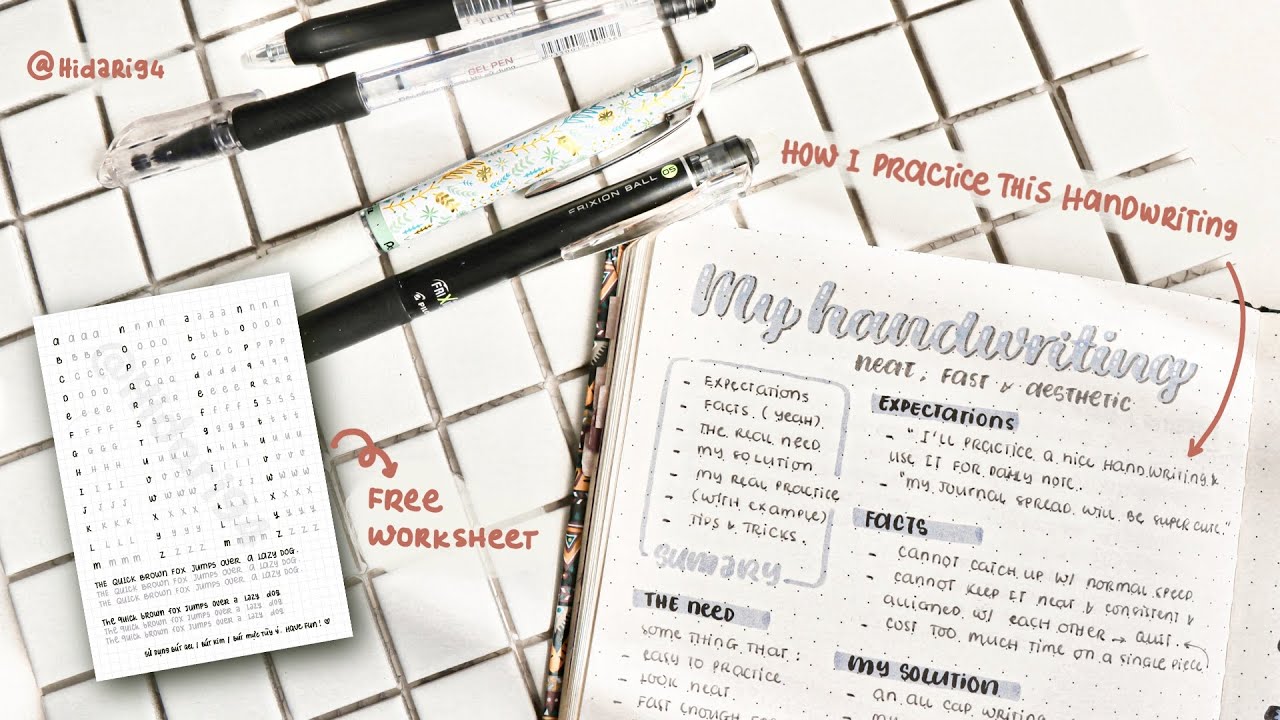 @HidaRi94
GEL PEN
FRIXION BALL 05
FRIX
HOW I PRACTICE THIS HANDWRITING
FREE
WORKSHEET
a a a a n n n n a a a a n n n n
B B B B O O O O b b b b o o o o
C C C C P P P P c c c c p p p p
D D D D Q Q Q Q d d d d q q q q
e e e e R R R R e e e e R R R R
F F F F S S S S f f f f s s s s
G G G G T T T T g g g g t t t t
H H H H U U U U h h h h u u u u
I I I I V V V V i i i i v v v v
J J J J W W W W j j j j w w w w
K K K K X X X X k k k k x x x x
L L L L Y Y Y Y l l l l y y y y
m m m m Z Z Z Z m m m m Z Z Z Z
THE QUICK BROWN FOX JUMPS OVER A LAZY DOG.
THE QUICK BROWN FOX JUMPS OVER A LAZY DOG.
THE QUICK BROWN FOX JUMPS OVER A LAZY DOG.
The quick brown fox jumps over a lazy dog
The quick brown fox jumps over a lazy dog
The quick brown fox jumps over a lazy dog
SỬ DỤNG BÚT GEL / BÚT KIM / BÚT MỰC TÙY Ý. HAVE FUN!
My handwriting
neat, fast & aesthetic
- EXPECTATIONS
- FACTS. (YEAH).
- THE REAL NEED
- MY SOLUTION.
- MY REAL PRACTICE
- (WITH EXAMPLE)
- TIPS & TRICKS.
SUMMARY
EXPECTATIONS
- "I'LL PRACTICE A NICE HANDWRITING &
USE IT FOR DAILY NOTE.
- "MY JOURNAL SPREAD WILL BE SUPER CUTE"
FACTS
- CANNOT CATCH UP W/ NORMAL SPEED.
- CANNOT KEEP IT NEAT & CONSISTENT &
ALIGNED W/ EACH OTHER → QUIT.
- COST TOO MUCH TIME ON A SINGLE PIECE
THE NEED
SOME THING THAT:
- EASY TO PRACTICE.
- LOOK NEAT.
- FAST ENOUGH
MY SOLUTION
- AN ALL CAP WRITING